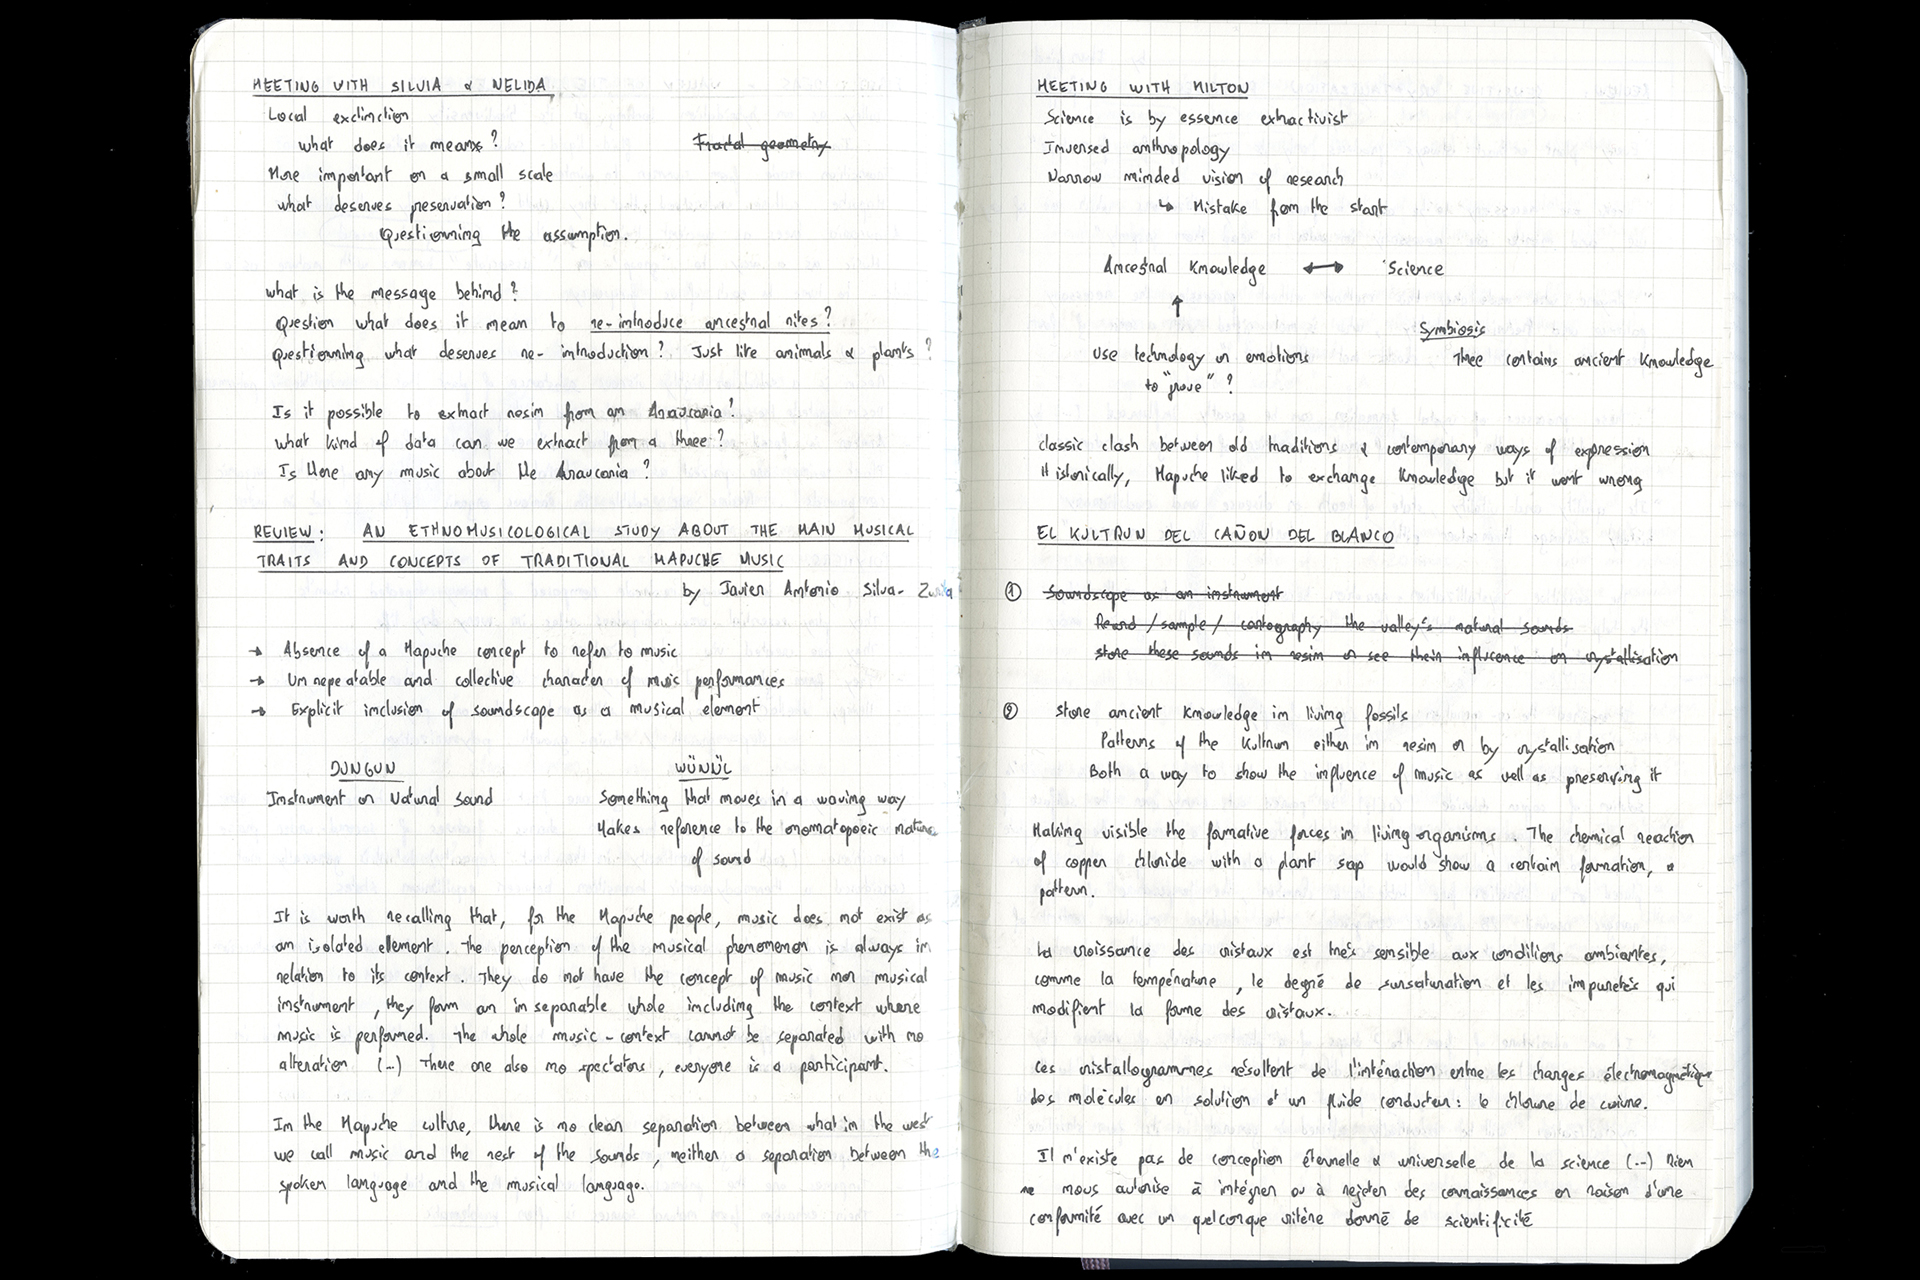 MEETING WITH SILVIA & NELIDA
Local extinction
what does it means?
Fractal geometry
More important on a small scale
what deserves preservation?
Questionning the assumption.
what is the message behind?
Question what does it mean to re-introduce ancestral rites?
Questionning what deserves re-introduction? Just like animals & plants?
Is it possible to extract resin from an Araucania?
what kind of data can we extract from a three?
Is there any music about the Araucania?
REVIEW: AN ETHNOMUSICOLOGICAL STUDY ABOUT THE MAIN MUSICAL
TRAITS AND CONCEPTS OF TRADITIONAL MAPUCHE MUSIC
by Javier Antonio Silva-Zurita
→ Absence of a Mapuche concept to refer to music
→ Unrepeatable and collective character of music performances
→ Explicit inclusion of soundscape as a musical element
DUNGUN
WÜNÜL
Instrument or Natural Sound
Something that moves in a waving way
Makes reference to the onomatopoeic nature
of sound
It is worth recalling that, for the Mapuche people, music does not exist as
an isolated ellement. The perception of the musical phenomenon is always in
relation to its context. They do not have the concept of music nor musical
instrument, they form an inseparable whole including the context where
music is performed. The whole music-context cannot be separated with no
alteration (...) There are also no spectators, everyone is a participant.
In the Mapuche culture, there is no clean separation between what in the west
we call music and the rest of the sounds, neither a separation between the
spoken language and the musical language.
MEETING WITH MILTON
Science is by essence extractivist
Inversed anthropology
Narrow minded vision of research
↳ Mistake from the start
Ancestral Knowledge ↔ Science
↑
Symbiosis
Use technology or emotions
Three contains ancient Knowledge
to "prove"?
classic clash between old traditions & contemporary ways of expression
Historically, Mapuche liked to exchange Knowledge but it went wrong
EL KULTRUN DEL CAÑON DEL BLANCO
① Soundscape as an instrument
Record / sample / cartography the valley's natural sounds
store these sounds in resin or see their influcence on crystallisation
② Store ancient Knowledge in living fossils
Patterns of the Kultrun either in resin or by crystallisation
Both a way to show the influence of music as well as preserving it
Making visible the formative forces in living organisms. The chemical reaction
of copper chloride with a plant sap would show a certain formation, a
pattern.
La croissance des cristaux est très sensible aux conditions ambiantes,
comme la température, le degré de sursaturation et les impuretés qui
modifient la forme des cristaux.
Ces cristallogrammes résultent de l'intéraction entre les charges électromagnétique
des molécules en solution et un fluide conducteur: le chlorure de cuivre.
Il n'existe pas de conception éternelle & universelle de la science (...) Rien
ne nous autorise à intégrer ou à rejeter des connaissances en raison d'une
conformité avec un quelconque critère donné de scientificité